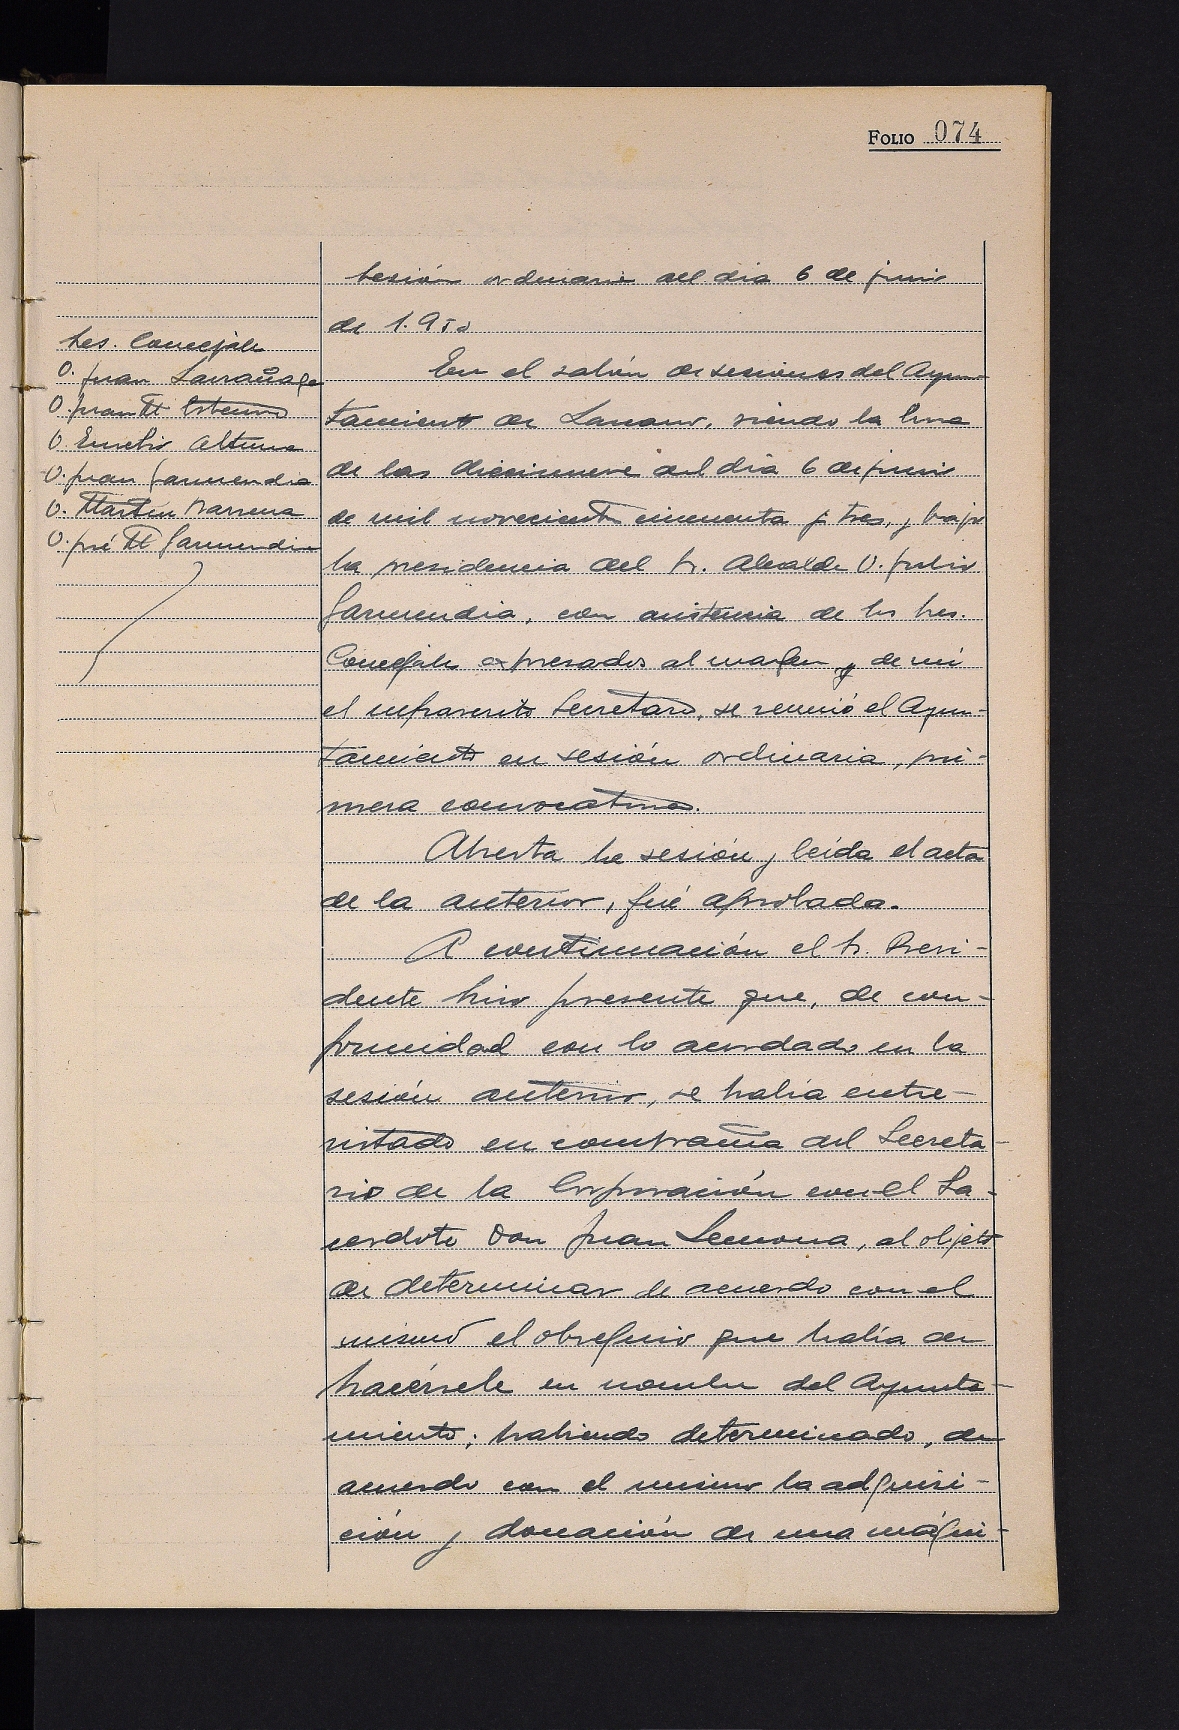 FOLIO 074
Sesión ordinaria del dia 6 de junio
de 1.953
Sres. Concejales
D. Juan Larrañaga
D. Juan Mª
D. Eusebio Altuna
D. Juan Garmendia
D. Martin Barrena
D. José Mª Garmendia
En el salón de sesiones del Ayun-
tamiento de Lazcano, siendo la hora
de las diecinueve del dia 6 de junio
de mil novecientos cincuenta y tres, y bajo
la presidencia del Sr. Alcalde D. Julio
Garmendia, con asistencia de los Sres.
Concejales expresados al margen y de mi
el infrascrito Secretario, se reunió el Ayun-
tamiento en sesión ordinaria, pri-
mera convocatoria.
Abierta la sesión y leida el acta
de la anterior, fué aprobada.
A continuación el Sr. Presi-
dente hizo presente que, de con-
formidad con lo acordado en la
sesión anterior, se habia entre-
vistado en compañia del Secreta-
rio de la Corporación con el Sa-
cerdote Don Juan Lecuona, al objeto
de determinar de acuerdo con el
mismo el obsequio que habia de
hacérsele en nombre del Ayunta-
miento; habiendo determinado, de
acuerdo con el mismo la adquisi-
ción y donación de una máqui-